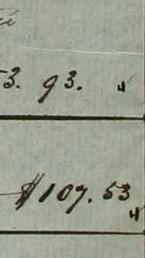 3. 93. "
$107.53 "